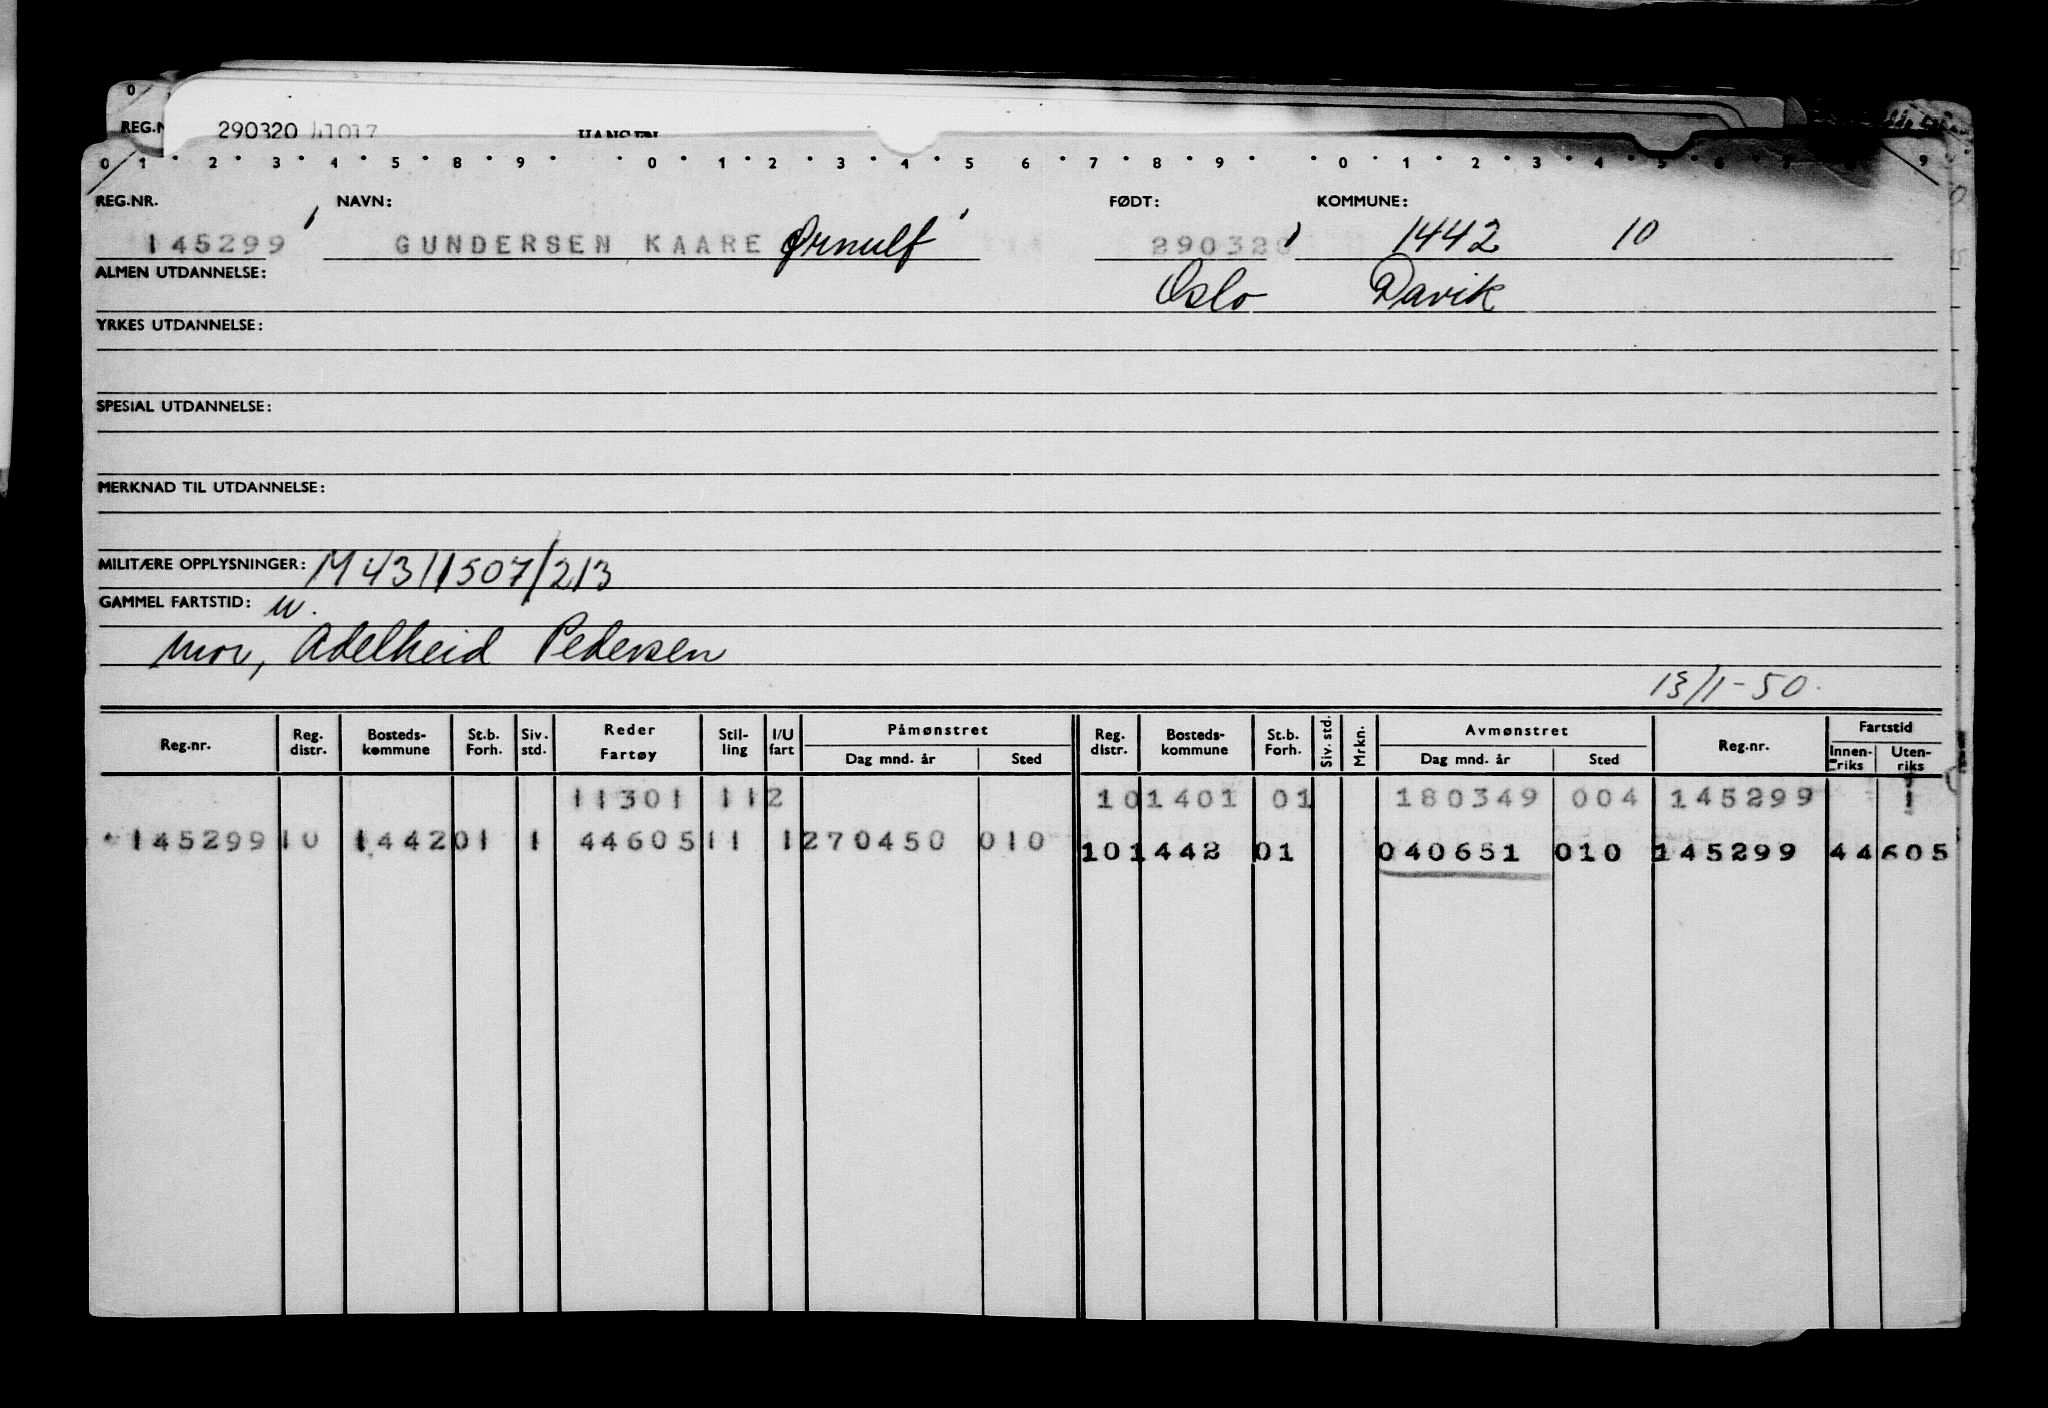 0
REG.N 290320 41017 HANSEN
0 1 2 3 4 5 6 7 8 9 0 1 2 3 4 5 6 7 8 9 0 1 2 3 4 5 6 7 8 9
REG.NR. NAVN: FØDT: KOMMUNE:
145299 GUNDERSEN KAARE Ørnulf 290320 1442 10
ALMEN UTDANNELSE: Oslo Davik
YRKES UTDANNELSE:
SPESIAL UTDANNELSE:
MERKNAD TIL UTDANNELSE:
MILITÆRE OPPLYSNINGER: M 43/1507/213
GAMMEL FARTSTID: u.
mor, Adelheid Pedersen
13/1-50.
Reg.nr. Reg. distr. Bosteds-kommune St.b. Forh. Siv. std. Reder Fartøy Stil-ling I/U fart Påmønstret Dag mnd. år Sted Reg. distr. Bosteds-kommune St.b. Forh. Siv. std. Mrkn. Avmønstret Dag mnd. år Sted Reg.nr. Fartstid Innen-riks Uten-riks
11301 112 10 1401 01 180349 004 145299 1
145299 10 1442 01 1 44605 11 1 270450 010 10 1442 01 040651 010 145299 44605